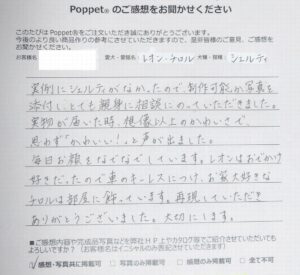 Poppet® のご感想をお聞かせください
このたびは Poppet®をご注文いただき誠にありがとうございます。
今後のより良い商品作りの参考にさせていただきますので、是非皆様のご意見、ご感想を
お聞かせください。
お客様名 愛犬・愛猫名 レオン・チロル 犬種・猫種 シェルティ
実例にシェルティがなかったので制作可能か写真を
添付しとても親身に相談にのっていただきました。
実物が届いた時、想像以上のかわいさで、
思わず「かわいい!」と声が出ました。
毎日お顔をなでなでしています。レオンはおでかけ
好きだったので車のキーレスにつけ、お家大好きな
チロルは部屋に飾っています。再現していただき
ありがとうございました。大切にします。
■ご感想内容や完成品写真などを弊社HP上やカタログ等でご紹介させていただいても
よろしいですか?
感想・写真共に掲載可 写真のみ掲載可 感想のみ掲載可 全て不可